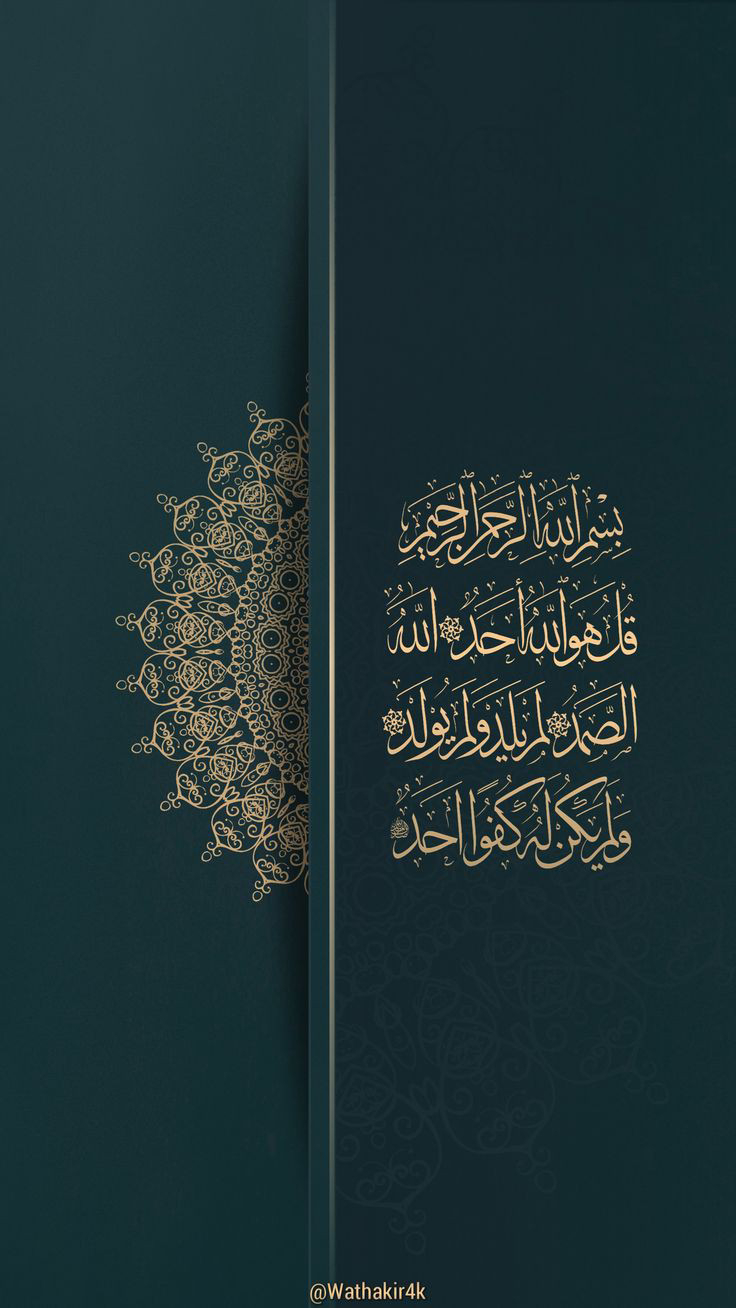 بِسْمِ ٱللَّهِ ٱلرَّحْمَٰنِ ٱلرَّحِيمِ
قُلْ هُوَ ٱللَّهُ أَحَدٌ ۝ ٱللَّهُ
ٱلصَّمَدُ ۝ لَمْ يَلِدْ وَلَمْ يُولَدْ ۝
وَلَمْ يَكُن لَّهُۥ كُفُوًا أَحَدٌ
@Wathakir4k